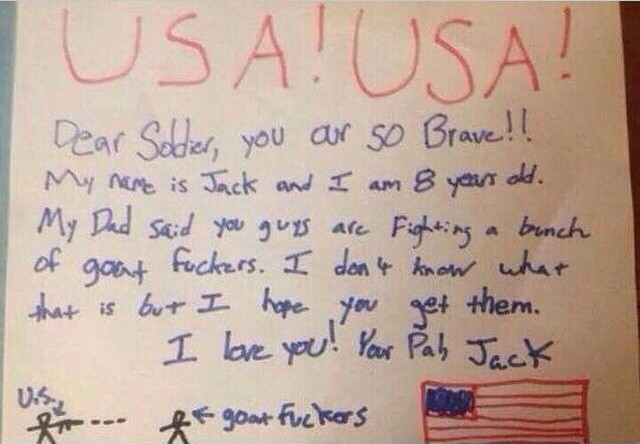 USA! USA!
Dear Soldier, you our so Brave!!
My name is Jack and I am 8 years old.
My Dad said you guys are Fighting a bunch
of goat fuckers. I don't know what
that is but I hope you get them.
I love you! Your Pal, Jack
U.S.
goat fuckers